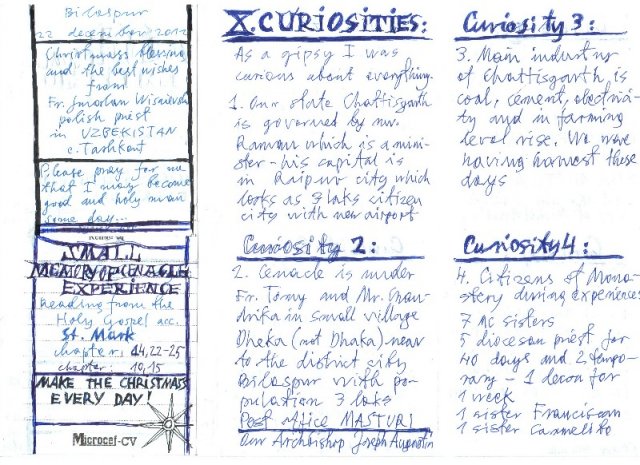 Bilaspur
22 december 2012
Christmass blessing
and the best wishes
from
Fr. Jarosław Wiśniewski
polish priest
in UZBEKISTAN
c. Tashkent
Please pray for me
that I may become
good and holy man
some day...
SMALL
MEMORY OF CENACLE
EXPERIENCE
Reading from the
Holy Gospel acc.
St. Mark
chapter: 14,22-25
chapter: 10,15
MAKE THE CHRISTMASS
EVERY DAY!
Microcef-CV
X. CURIOSITIES:
As a gipsy I was
curious about everything.
1. Our state Chattisgarth
is governed by mr.
Raman which is a mini-
ster - his capital is
in Raipur city which
looks as 9 laks citizen
city with new airport
Curiosity 2:
2. Cenacle is under
Fr. Tomy and Mr. Chan-
drika in small village
Dheka (not Dhaka) near
to the district city
Bilaspur with po-
pulation 3 laks
Post office MASTURI
Our Archbishop Joseph Augustin
Curiosity 3:
3. Main industry
of Chattisgarth is
coal, cement, electrici-
ty and in farming
level rise. We were
having harvest these
days
Curiosity 4:
4. Citizens of Mona-
stery during experience
7 AC sisters
5 diocesan priest for
40 days and 2 tempo-
rary - 1 decon for
1 week
1 sister Franciscan
1 sister carmelito